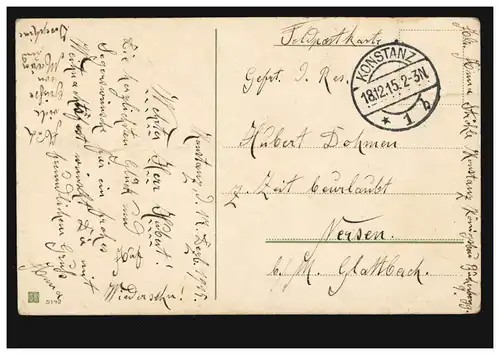 Feldpostkarte
KONSTANZ
18.12.15. 2-3N
* 1 b
Gefrt. d. Res.
Hubert Dohmen
z. Zeit beurlaubt
Nersen.
b/M. Glattbach.
Konstanz d. 18. Dezb. 1915.
Werter Herr Hubert!
Die herzlichsten Glück und
Segenswünsche für ein frohes
Weihnachtsfest sendet Dir mit
freundlichem Gruß
Auf
Wiedersehn!
viele
Grüße
von
5142